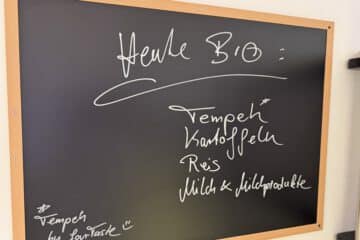 Heute BIO:
Tempeh*
Kartoffeln
Reis
Milch & Milchprodukte
*Tempeh
by